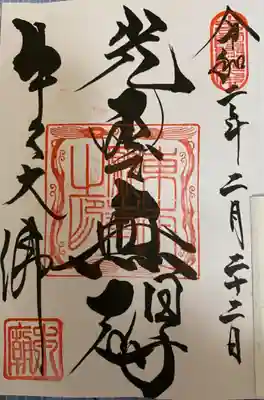 令和二年二月二十二日
光雲無碍
牛久大佛